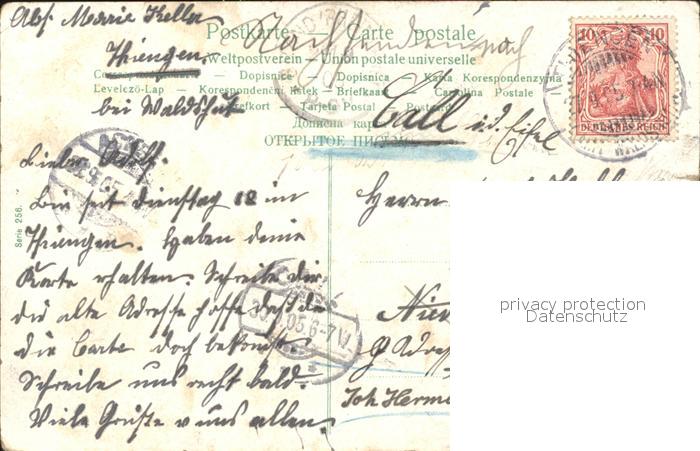 Abs. Marie Keller
Thiengen.
bei Waldshut
Postkarte — Carte postale
Weltpostverein — Union postale universelle
Dopisnice — Dopisnica — Karta Korespondenzyina
Levelező-Lap — Korrespondenční lístek — Briefkaart — Cartolina Postale
Brefkort — Tarjeta Postal
Дописна
ОТКРЫТОЕ ПИСЬМО
Nachsenden nach
Call i. d. Eifel
10 10
DEUTSCHES REICH
Serie 256.
Lieber Adolf.
Bin seit Dienstag 12 in
Thiengen. Haben deine
Karte erhalten. Schreibe dir
die alte Adresse hoffe daß du
die Carte doch bekomst.
Schreibe uns recht bald.
Viele Grüße v uns allen.
Herrn
p Adr
Joh Herm
05.6-7V.
privacy protection
Datenschutz